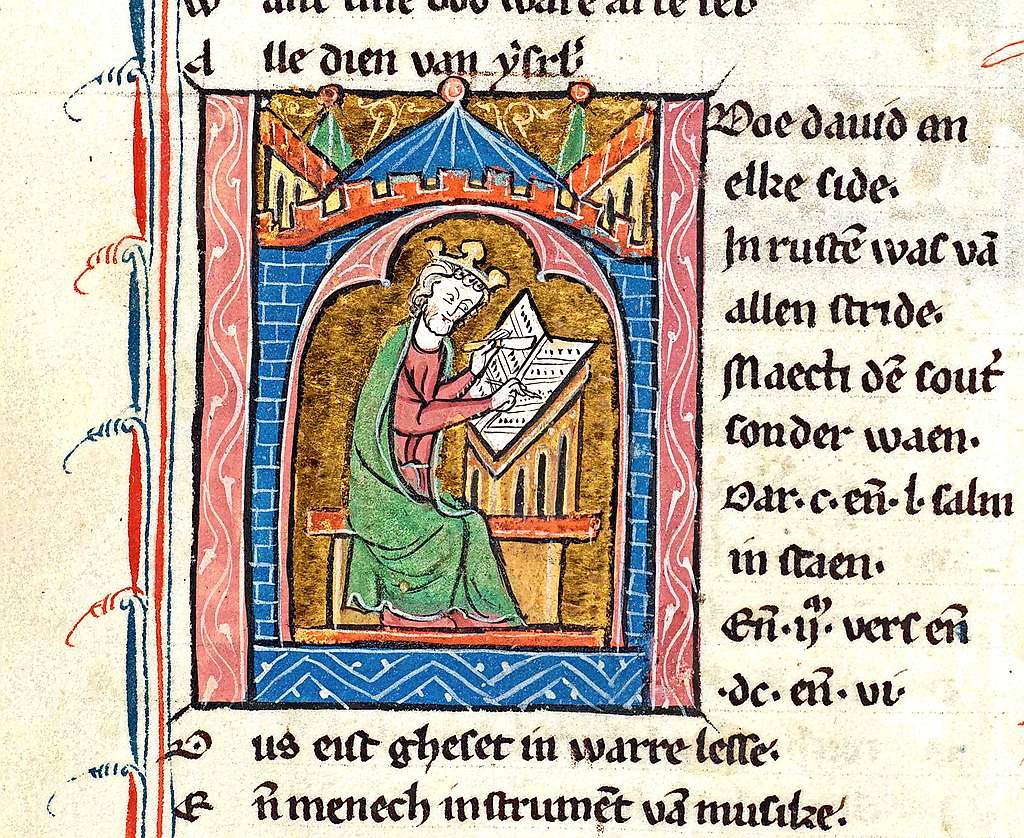 A lle dien van ysrl'
Doe dauid an
elke side.
In rustē was vā
allen stride.
Maecti dē sout'
sonder waen.
Dar·c·eñ·l·salm
in staen.
Eñ·ij·ᵐ vers eñ
·dc·eñ·vi·
D us eist gheset in warre lesse.
E ñ menech instrumēt vā musike.